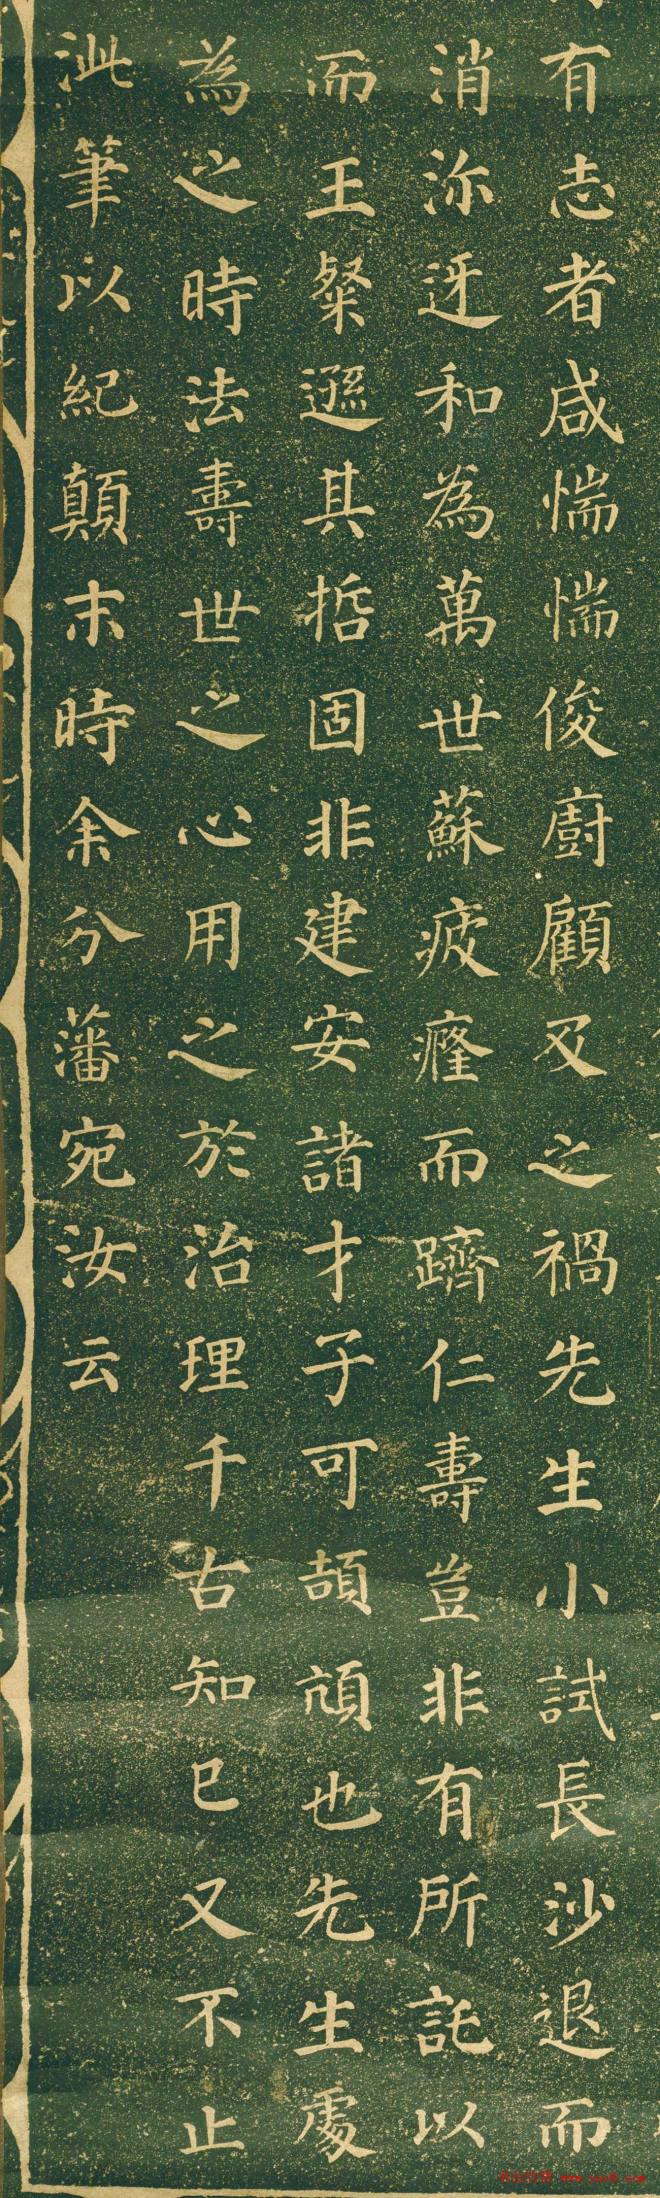 有志者咸惴惴俊廚顧及之禍先生小試長沙退而
消沵迓和為萬世蘇疲癃而躋仁壽豈非有所託以
而王粲遜其哲固非建安諸才子可頡頏也先生處
為之時法壽世之心用之於治理千古知己又不止
泚筆以紀顛末時余分藩宛汝云